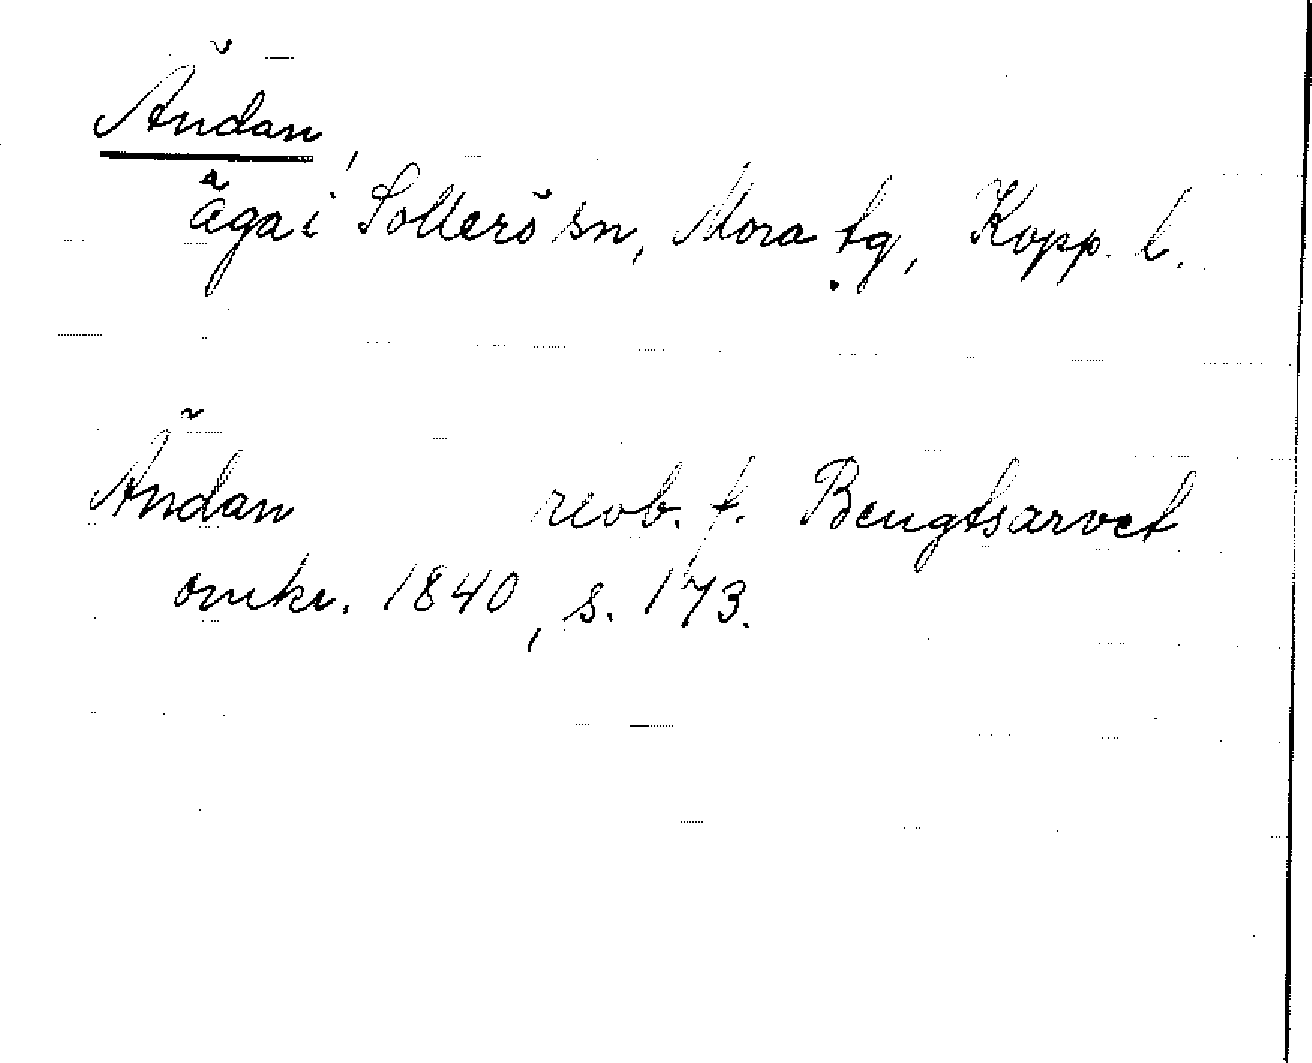 Ändan,
äga i Sollerö sn, Mora tg, Kopp. l.
Ändan reob. f. Bengtsarvet
omkr. 1840, s. 173.